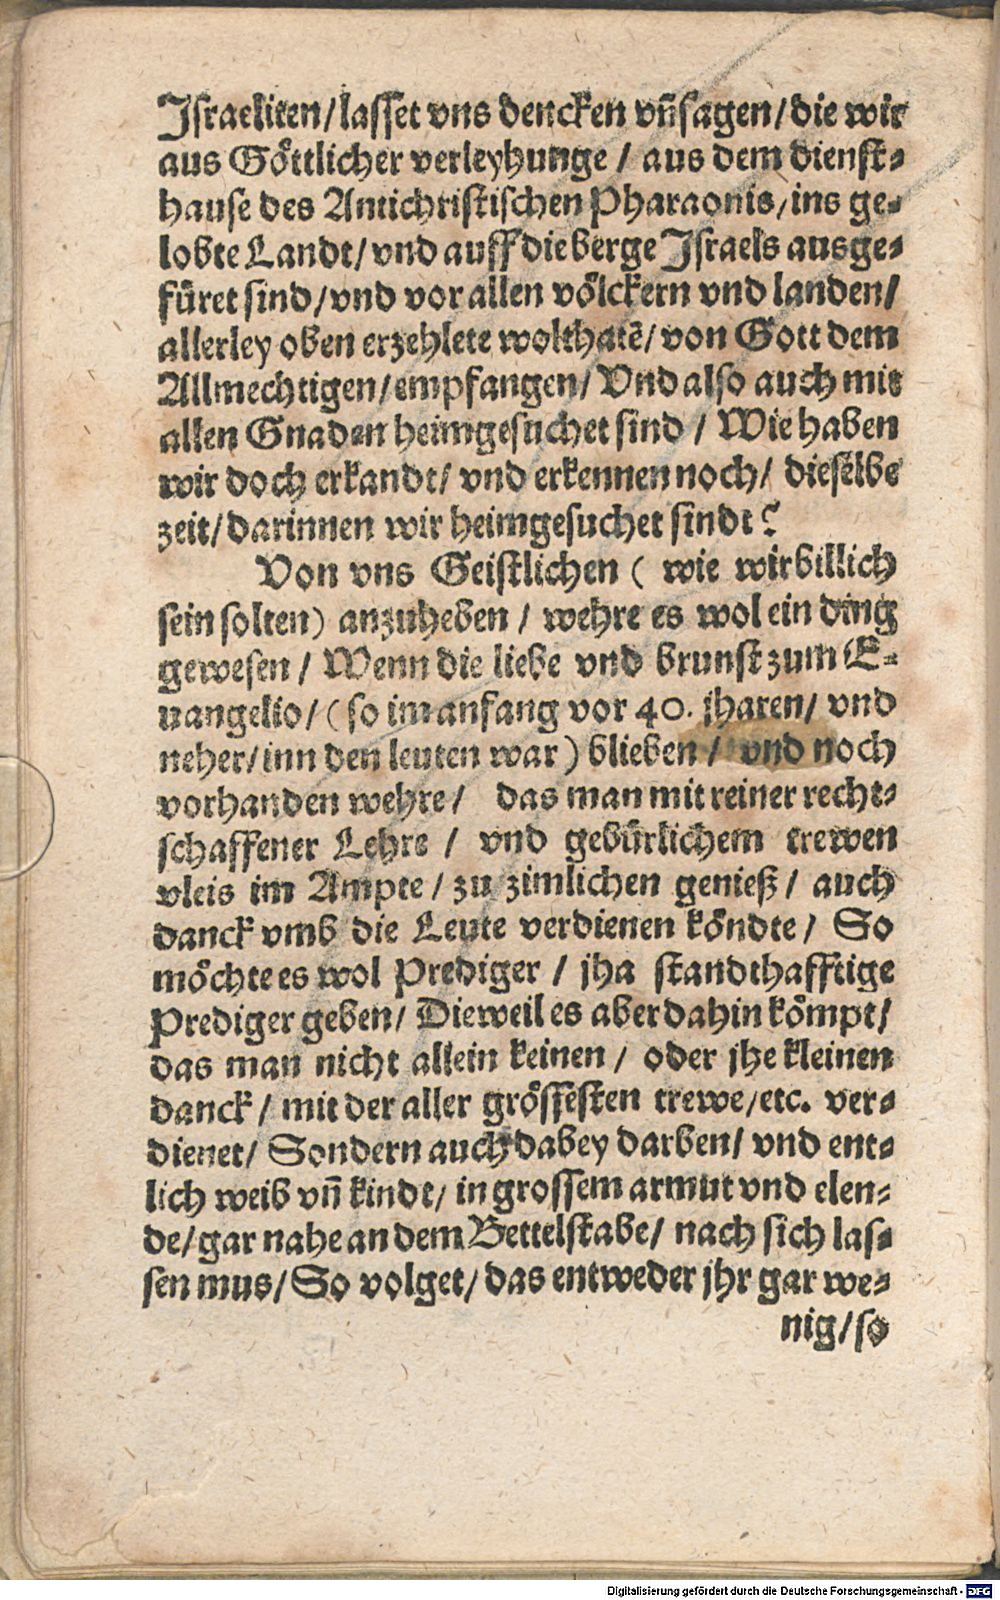 Israeliten/lasset vns dencken vñ sagen/die wir
aus Göttlicher verleyhunge / aus dem dienst-
hause des Antichristischen Pharaonis/ins ge-
lobte Landt/vnd auff die berge Israels ausge-
füret sind/vnd vor allen völckern vnd landen/
allerley oben erzehlete wolthatē/von Gott dem
Allmechtigen/empfangen/Vnd also auch mit
allen Gnaden heimgesuchet sind / Wie haben
wir doch erkandt/ vnd erkennen noch/ dieselbe
zeit/darinnen wir heimgesuchet sindt?
Von vns Geistlichen ( wie wir billich
sein solten) anzuheben / wehre es wol ein ding
gewesen / Wenn die liebe vnd brunst zum E-
uangelio/(so im anfang vor 40. jharen/ vnd
neher/inn den leuten war ) blieben / vnd noch
vorhanden wehre / das man mit reiner recht-
schaffener Lehre / vnd gebürlichem trewen
vleis im Ampte / zu zimlichen genieß / auch
danck vmb die Leute verdienen köndte / So
möchte es wol Prediger / jha standthafftige
Prediger geben/ Dieweil es aber dahin kömpt/
das man nicht allein keinen / oder jhe kleinen
danck / mit der aller grössesten trewe/etc. ver-
dienet/ Sondern auch dabey darben/ vnd ent-
lich weib vñ kindt/ in grossem armut vnd elen-
de/gar nahe an dem Bettelstabe/ nach sich las-
sen mus/So volget/das entweder jhr gar we-
nig/so
Digitalisierung gefördert durch die Deutsche Forschungsgemeinschaft - DFG